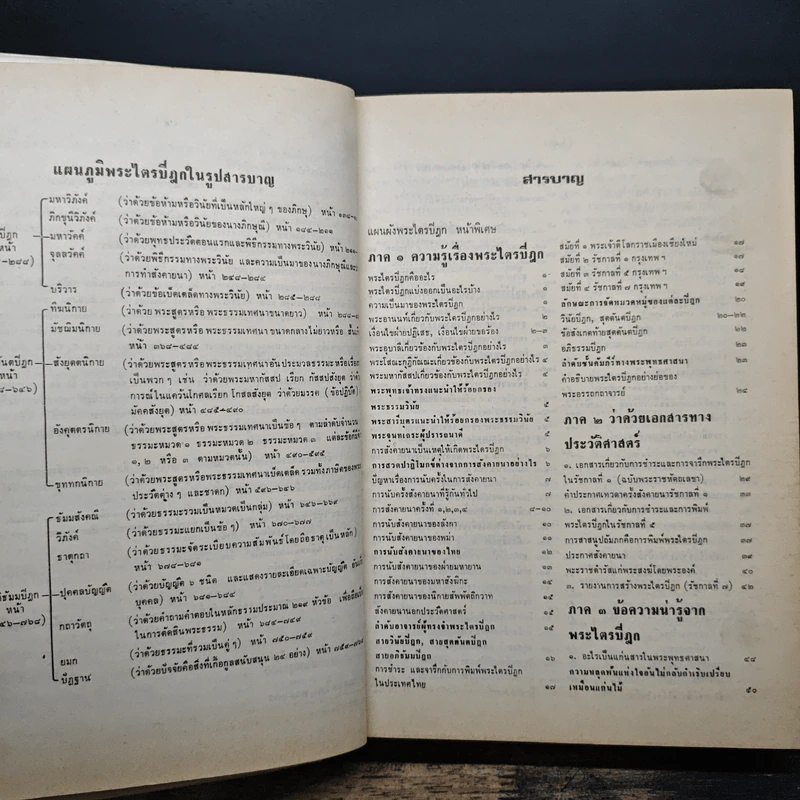 แผนภูมิพระไตรปิฎกในรูปสารบาญ
มหาวิภังค์ (ว่าด้วยข้อห้ามหรือวินัยที่เป็นหลักใหญ่ ๆ ของภิกษุ) หน้า
ภิกขุนีวิภังค์ (ว่าด้วยข้อห้ามหรือวินัยของนางภิกษุณี) หน้า ๑๘๔-๒๑๑
มหาวัคค์ (ว่าด้วยพุทธประวัติตอนแรกและพิธีกรรมทางพระวินัย) หน้า
จุลลวัคค์ (ว่าด้วยพิธีกรรมทางพระวินัย และความเป็นมาของนางภิกษุณีและ
การทำสังคายนา) หน้า ๒๔๔-๒๘๔
บริวาร (ว่าด้วยข้อเบ็ดเตล็ดทางพระวินัย) หน้า ๒๘๕-๒๘๘
ปิฎก
หน้า
-๒๘๘)
ทีฆนิกาย (ว่าด้วย พระสูตรหรือ พระธรรมเทศนาขนาดยาว) หน้า
มัชฌิมนิกาย (ว่าด้วยพระสูตรหรือ พระธรรมเทศนา ขนาดกลางไม่ยาวหรือ
หน้า ๓๖๘-๔๘๔
สังยุตตนิกาย (ว่าด้วยพระสูตรหรือ พระธรรมเทศนา อันประมวลธรรมหรือเรื่อง
เป็นพวก ๆ เช่น ว่าด้วยพระมหากัสสป เรียก กัสสปสังยุต
การณ์ในแคว้นโกศลเรียก โกสลสังยุต ว่าด้วยมรรค (ข้อปฏิบัติ)
มัคคสังยุต) ๔๘๕-๔๙๐
อังคุตตรนิกาย (ว่าด้วยพระสูตรหรือ พระธรรมเทศนาเป็นข้อ ๆ ตามลำดับจำนวน
ธรรมะหมวด ๑ ธรรมะหมวด ๒ ธรรมะหมวด ๓ แต่ละข้อก็มี
๑, ๒ หรือ ๓ ตามหมวดนั้น) หน้า ๔๙๐-๕๙๕
ขุททกนิกาย (ว่าด้วยพระสูตรหรือพระธรรมเทศนาเบ็ดเตล็ด รวมทั้งภาษิตของพระ
ประวัติต่าง ๆ และชาดก) หน้า ๕๙๖-๖๔๖
ตปิฎก
หน้า
-๖๔๖)
ธัมมสังคณี (ว่าด้วยธรรมะรวมเป็นหมวดเป็นกลุ่ม) หน้า ๖๔๖-๖๖๙
วิภังค์ (ว่าด้วยธรรมะแยกเป็นข้อ ๆ) หน้า ๖๗๐-๖๗๗
ธาตุกถา (ว่าด้วยธรรมะจัดระเบียบความสัมพันธ์โดยถือธาตุเป็นหลัก)
หน้า ๖๗๘-๖๘๑
ปุคคลบัญญัติ (ว่าด้วยบัญญัติ ๖ ชนิด และแสดงรายละเอียดเฉพาะบัญญัติ
บุคคล) หน้า ๖๘๑-๖๘๔
กถาวัตถุ (ว่าด้วยคำถามคำตอบในหลักธรรมประมาณ ๒๑๙ หัวข้อ
ในการตัดสินพระธรรม) หน้า ๖๘๔-๗๔๙
ยมก (ว่าด้วยธรรมะที่รวมเป็นคู่ ๆ) หน้า ๗๕๐-๗๕๙
ปัฏฐาน (ว่าด้วยปัจจัยคือสิ่งที่เกื้อกูลสนับสนุน ๒๔ อย่าง) หน้า
ธัมมปิฎก
หน้า
๔๖-๗๖๘)
สารบาญ
แผนผังพระไตรปิฎก หน้าพิเศษ
ภาค ๑ ความรู้เรื่องพระไตรปิฎก
พระไตรปิฎกคืออะไร ๑
พระไตรปิฎกแบ่งออกเป็นอะไรบ้าง ๑
ความเป็นมาของพระไตรปิฎก ๑
พระอานนท์เกี่ยวกับพระไตรปิฎกอย่างไร ๒
เงื่อนไขฝ่ายปฏิเสธ, เงื่อนไขฝ่ายขอร้อง ๒-๓
พระอุบาลีเกี่ยวข้องกับพระไตรปิฎกอย่างไร ๓
พระโสณะกุฏิกัณณะเกี่ยวข้องกับพระไตรปิฎกอย่างไร ๔
พระมหากัสสปเกี่ยวข้องกับพระไตรปิฎกอย่างไร ๔
พระพุทธเจ้าทรงแนะนำให้ร้อยกรอง
พระธรรมวินัย ๕
พระสารีบุตรแนะนำให้ร้อยกรองพระธรรมวินัย ๕
พระจุนทเถระผู้ปรารถนาดี ๕
การสังคายนาเป็นเหตุให้เกิดพระไตรปิฎก ๖
การสวดปาฏิโมกข์ต่างจากการสังคายนาอย่างไร ๖
ปัญหาเรื่องการนับครั้งในการสังคายนา ๗
การนับครั้งสังคายนาที่รู้กันทั่วไป ๗
การสังคายนาครั้งที่ ๑,๒,๓,๔ ๘-๑๐
การนับสังคายนาของลังกา ๑๐
การนับสังคายนาของพม่า ๑๑
การนับสังคายนาของไทย ๑๒
การสังคายนาของฝ่ายมหายาน ๑๓
การสังคายนาของมหาสังฆิกะ ๑๔
การสังคายนาของนิกายสัพพัตถิกวาท ๑๔
สังคายนานอกประวัติศาสตร์ ๑๕
ลำดับอาจารย์ผู้ทรงจำพระไตรปิฎก ๑๕
สายวินัยปิฎก, สายสุตตันตปิฎก
สายอภิธัมมปิฎก ๑๖
การชำระ และจารึกกับการพิมพ์พระไตรปิฎก
ในประเทศไทย ๑๗
สมัยที่ ๑ พระเจ้าติโลกราชเมืองเชียงใหม่ ๑๗
สมัยที่ ๒ รัชกาลที่ ๑ กรุงเทพฯ ๑๘
สมัยที่ ๓ รัชกาลที่ ๕ กรุงเทพฯ ๑๘
สมัยที่ ๔ รัชกาลที่ ๗ กรุงเทพฯ ๑๙
ลักษณะการจัดหมวดหมู่ของแต่ละปิฎก ๒๐
วินัยปิฎก, สุตตันตปิฎก ๒๐-๒๒
ข้อสังเกตท้ายสุตตันตปิฎก ๒๒
อภิธรรมปิฎก ๒๓
ลำดับชั้นคัมภีร์ทางพระพุทธศาสนา ๒๓
คำอธิบายพระไตรปิฎกอย่างย่อของ
พระอรรถกถาจารย์ ๒๔
ภาค ๒ ว่าด้วยเอกสารทาง
ประวัติศาสตร์
๑. เอกสารเกี่ยวกับการชำระและการจารึกพระไตรปิฎก
ในรัชกาลที่ ๑ (ฉบับพระราชหัตถเลขา) ๒๙
คำประกาศเทวดาครั้งสังคายนารัชกาลที่ ๑ ๓๓
๒. เอกสารเกี่ยวกับการชำระและการพิมพ์
พระไตรปิฎกในรัชกาลที่ ๕ ๓๗
การสาสนูปถัมภกคือการพิมพ์พระไตรปิฎก ๓๗
ประกาศสังคายนา ๓๘
พระราชดำรัสแก่พระสงฆ์โดยพระองค์ ๔๐
๓. รายงานการสร้างพระไตรปิฎก (รัชกาลที่ ๗) ๔๒
ภาค ๓ ข้อความน่ารู้จาก
พระไตรปิฎก
๑. อะไรเป็นแก่นสารในพระพุทธศาสนา ๔๘
ความหลุดพ้นแห่งใจอันไม่กลับกำเริบเปรียบ
เหมือนแก่นไม้ ๕๐